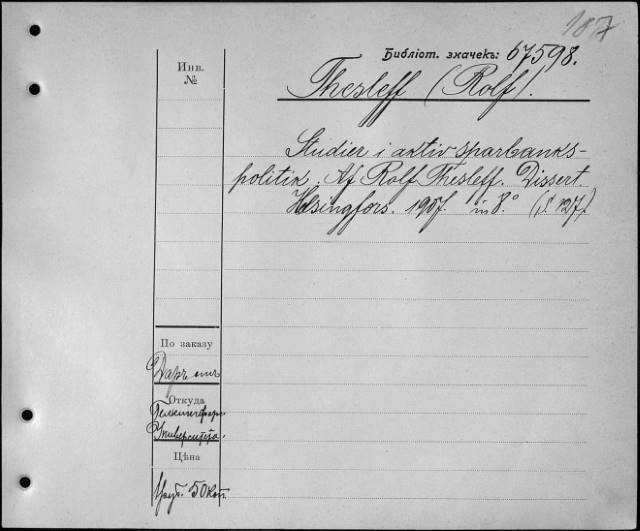 187
Библіот. значекъ: 67598.
Инв.
№
Thesleff (Rolf).
Studier i aktiv sparbanks-
politik. Af Rolf Thesleff. Dissert.
Helsingfors. 1907. in 8.° (
По заказу
Даръ отъ
Откуда
Гельсингфорс
Университета.
Цѣна
50 коп